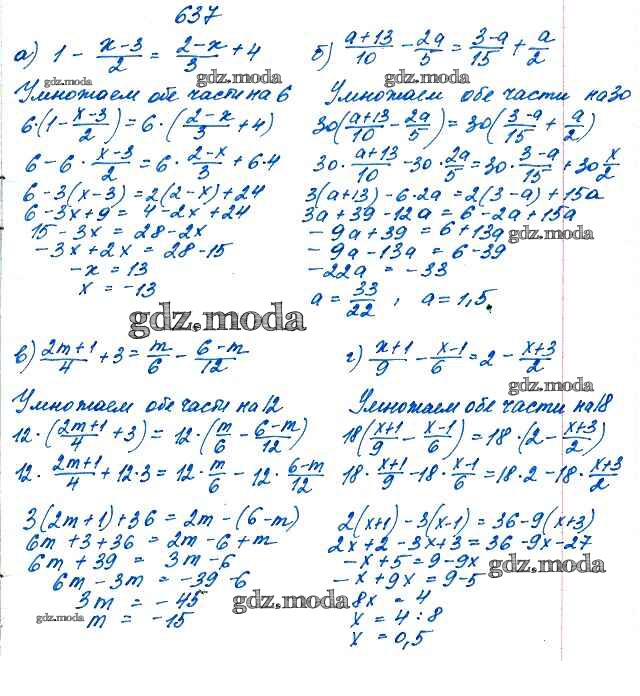 637
а) 1 - (x-3)/2 = (2-x)/3 + 4
Умножаем обе части на 6
6·(1 - (x-3)/2) = 6·((2-x)/3 + 4)
6 - 6·(x-3)/2 = 6·(2-x)/3 + 6·4
6 - 3(x-3) = 2(2-x) + 24
6 - 3x + 9 = 4 - 2x + 24
15 - 3x = 28 - 2x
-3x + 2x = 28 - 15
-x = 13
x = -13
б) (a+13)/10 - 2a/5 = (3-a)/15 + a/2
Умножаем обе части на 30
30((a+13)/10 - 2a/5) = 30((3-a)/15 + a/2)
30·(a+13)/10 - 30·2a/5 = 30·(3-a)/15 + 30 x/2
3(a+13) - 6·2a = 2(3-a) + 15a
3a + 39 - 12a = 6 - 2a + 15a
-9a + 39 = 6 + 13a
-9a - 13a = 6 - 39
-22a = -33
a = 33/22 , a = 1,5.
в) (2m+1)/4 + 3 = m/6 - (6-m)/12
Умножаем обе части на 12
12·((2m+1)/4 + 3) = 12·(m/6 - (6-m)/12)
12·(2m+1)/4 + 12·3 = 12·m/6 - 12·(6-m)/12
3(2m+1) + 36 = 2m - (6-m)
6m + 3 + 36 = 2m - 6 + m
6m + 39 = 3m - 6
6m - 3m = -39 - 6
3m = -45
m = -15
г) (x+1)/9 - (x-1)/6 = 2 - (x+3)/2
Умножаем обе части на 18
18((x+1)/9 - (x-1)/6) = 18·(2 - (x+3)/2)
18·(x+1)/9 - 18·(x-1)/6 = 18·2 - 18·(x+3)/2
2(x+1) - 3(x-1) = 36 - 9(x+3)
2x + 2 - 3x + 3 = 36 - 9x - 27
-x + 5 = 9 - 9x
-x + 9x = 9 - 5
8x = 4
x = 4 : 8
x = 0,5
gdz.moda
gdz.moda
gdz.moda
gdz.moda
gdz.moda
gdz.moda
gdz.moda
gdz.moda
gdz.moda
gdz.moda